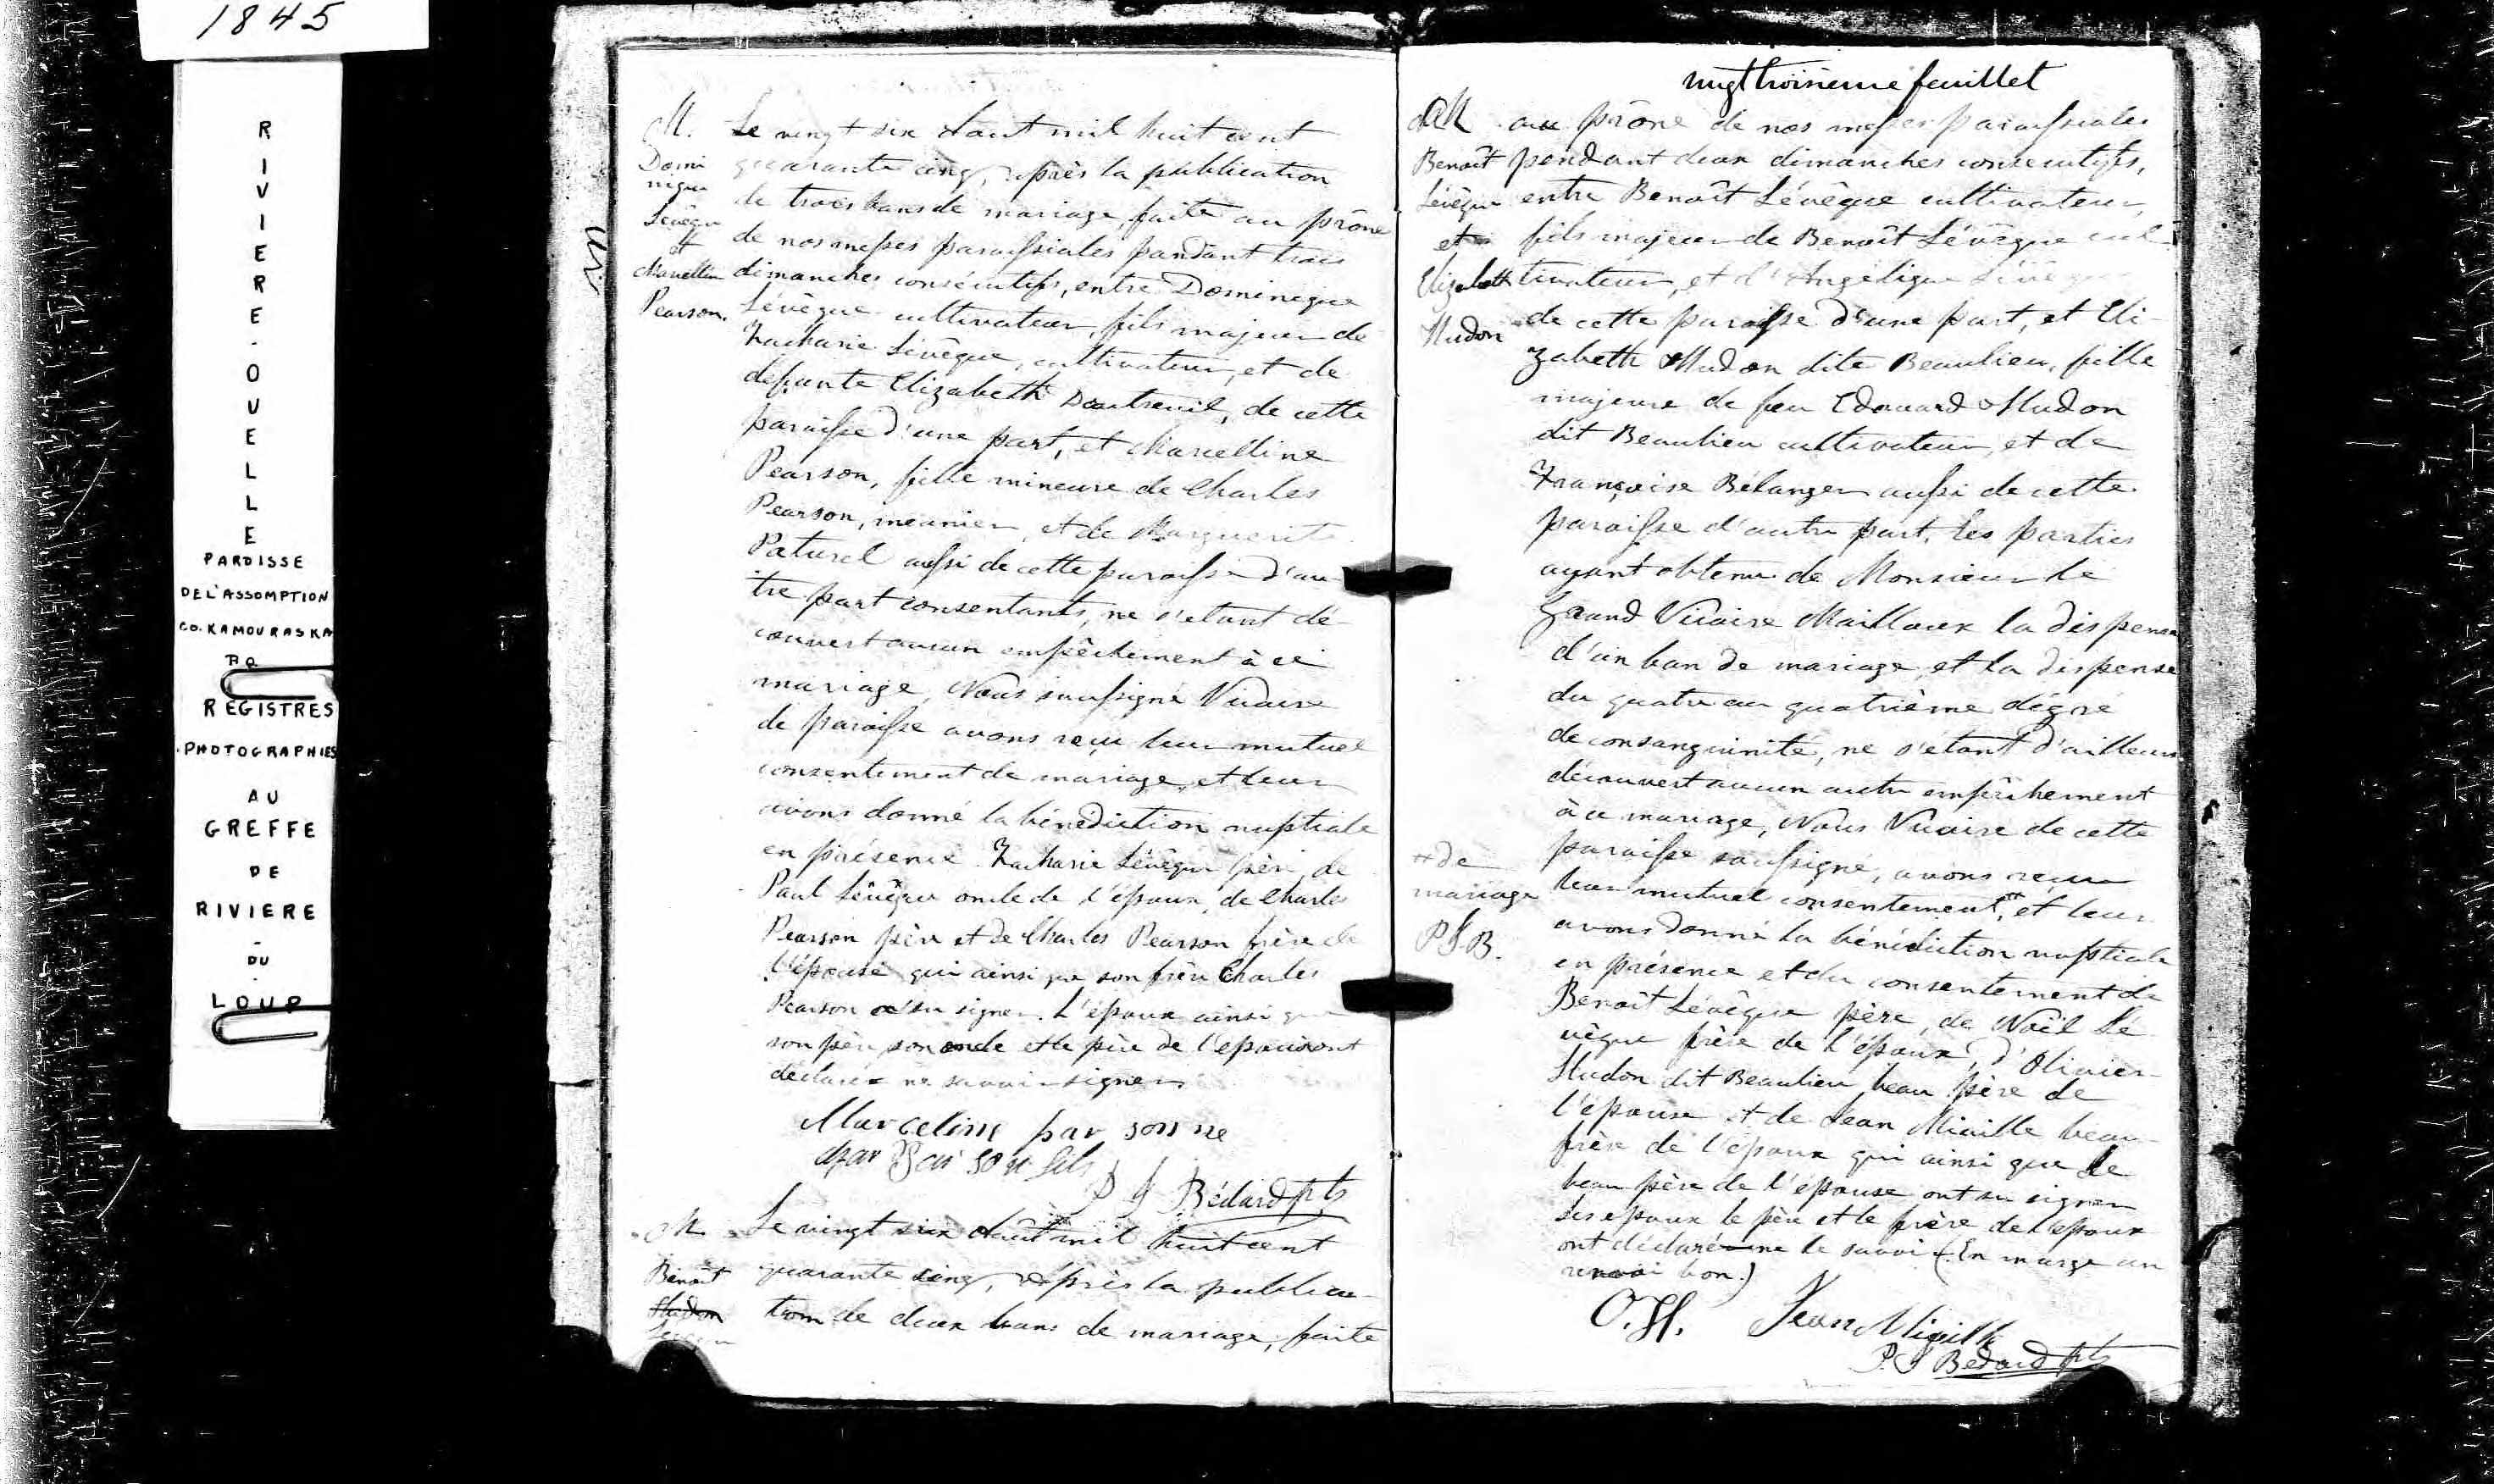 1845
RIVIERE-OUELLE
PAROISSE
DE L'ASSOMPTION
CO. KAMOURASKA
PQ
REGISTRES
PHOTOGRAPHIES
AU
GREFFE
DE
RIVIERE
-
DU
-
LOUP
M.
Domi
nique
Lévêque
et
Marcelline
Pearson.
Le vingt six d'aout mil huit cent
quarante cinq, après la publication
de trois bans de mariage, faite au prône
de nos messes paroissiales pandant trois
dimanches consécutifs, entre Dominique
Lévêque cultivateur, fils majeur de
Zacharie Lévêque, cultivateur, et de
defunte Elizabeth Dautreuil, de cette
paroisse d'une part, et Marcelline
Pearson, fille mineure de Charles
Pearson, meunier, et de Marguerite
Paturel aussi de cette paroisse d'au-
tre part consentants, ne s'etant dé-
couvert aucun empêchement à ce
mariage, Nous soussigné Vicaire
de paroisse avons reçu leur mutuel
consentement de mariage et leur
avons donné la bénédiction nuptiale
en présence Zacharie Lévêque père, de
Paul Lévêque oncle de l'époux, de Charles
Pearson père et de Charles Pearson frère de
l'épouse qui ainsi que son frère Charles
Pearson a su signer. L'époux ainsi que
son père son oncle et le père de l'epouse ont
déclaré ne savoir signer.
Marceline par sonne
par son fils
P J Bédard Ptr
M.
Benoît
Hudon
Lévêque
Le vingt six d'août mil huit cent
quarante cinq, après la publica-
tion de deux bans de mariage, faite
vingt troisieme feuillet
M
Benoît
Lévêque
et
Elizabeth
Hudon
au prône de nos messes paroissiales
pendant deux dimanches consecutifs,
entre Benoît Lévêque cultivateur,
fils majeur de Benoît Lévêque cul-
tivateur, et d'Angélique Lévêque
de cette paroisse d'une part, et Eli-
zabeth Hudon dite Beaulieu, fille
majeure de feu Edouard Hudon
dit Beaulieu cultivateur, et de
Françoise Bélanger aussi de cette
paroisse d'autre part, les parties
ayant obtenu de Monsieur le
Grand Vicaire Mailloux la dispense
d'un ban de mariage, et la dispense
du quatre au quatrième dégré
de consanguinité, ne s'étant d'ailleurs
découvert aucun autre empêchement
à ce mariage, Nous Vicaire de cette
paroisse soussigné, avons reçu
leur mutuel consentement, et leur
avons donné la bénédiction nuptiale
en présence et du consentement de
Benoît Lévêque père, de Noël Lé-
vêque frère de l'époux, d'Olivier
Hudon dit Beaulieu beau père de
l'épouse et de Jean Miville beau-
frère de l'époux qui ainsi que le
beau père de l'épouse ont su signer
Les epoux le père et le frère de l'epoux
ont déclaré ne le savoir (En marge un
renvoi bon.)
++ de
mariage
P.J.B.
O. H. Jean Miville
P. J Bedard Ptr